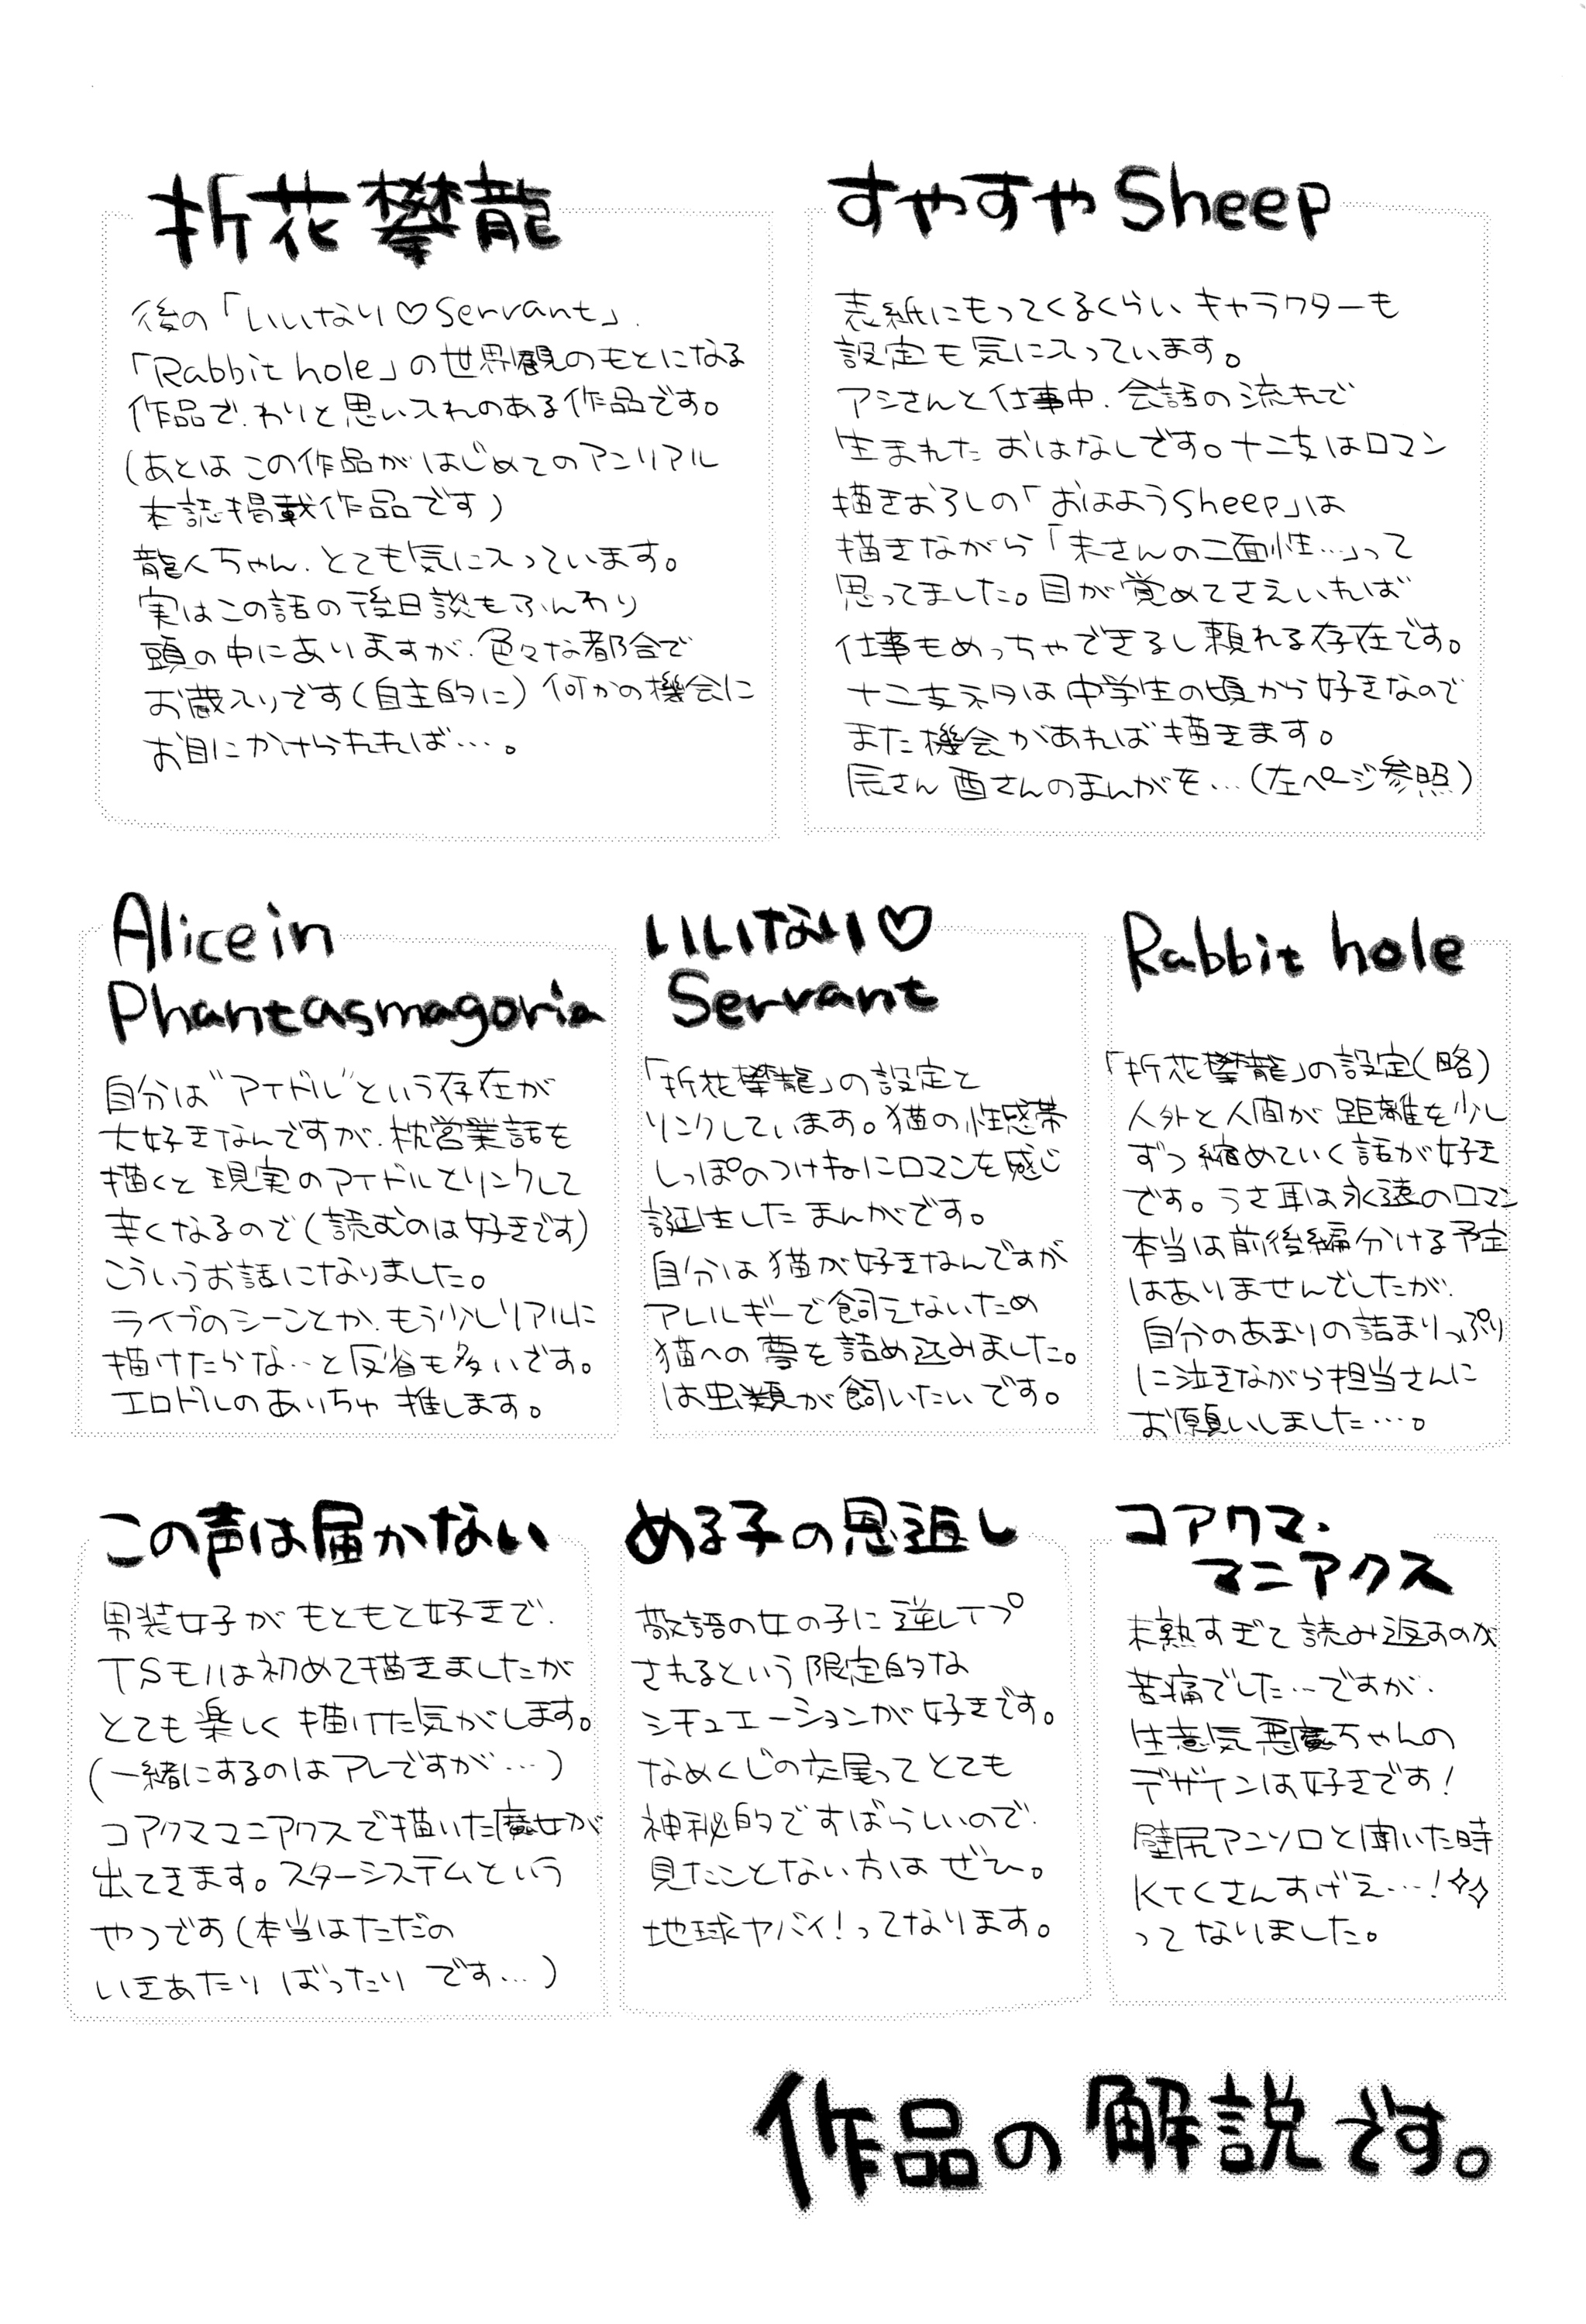 折花攀龍
後の「いいなり♡Servant」.
「Rabbit hole」の世界観のもとになる
作品で、わりと思い入れのある作品です。
(あとは この作品が はじめてのアンリアル
本誌掲載作品です)
龍人ちゃん、とても気に入っています。
実はこの話の後日談もふんわり
頭の中にありますが、色々な都合で
お蔵入りです(自主的に) 何かの機会に
お目にかけられれば…。
すやすや Sheep
表紙にもってくるくらい キャラクターも
設定も気に入っています。
アシさんと仕事中、会話の流れで
生まれた おはなしです。十二支はロマン
描きおろしの「おはようSheep」は
描きながら「未さんの二面性…」って
思ってました。目が覚めてさえいれば
仕事もめっちゃできるし頼れる存在です。
十二支ネタは中学生の頃から好きなので
また機会があれば描きます。
辰さん 酉さんのまんがを…(左ページ参照)
Alice in
Phantasmagoria
自分は"アイドル"という存在が
大好きなんですが、枕営業話を
描くと現実のアイドルとリンクして
辛くなるので(読むのは好きです)
こういうお話になりました。
ライブのシーンとか、もう少しリアルに
描けたらな…と反省も多いです。
エロドルのありちゅ 推します。
いいなり♡
Servant
「折花攀龍」の設定と
リンクしています。猫の性感帯
しっぽのつけねにロマンを感じ
誕生した まんがです。
自分は 猫が好きなんですが
アレルギーで飼えないため
猫への夢を詰め込みました。
は虫類が飼いたいです。
Rabbit hole
「折花攀龍」の設定(略)
人外と人間が 距離を少し
ずつ縮めていく話が好き
です。うさ耳は永遠のロマン
本当は前後編分ける予定
はありませんでしたが、
自分のあまりの詰まりっぷり
に泣きながら担当さんに
お願いしました…。
この声は届かない
男装女子が もともと好きで、
TSモノは初めて描きましたが
とても楽しく 描けた気がします。
(一緒にするのは アレですが…)
コアクママニアクスで描いた魔女が
出てきます。スターシステムという
やつです(本当はただの
いきあたり ばったり です…)
める子の恩返し
敬語の女の子に 逆レイプ
されるという 限定的な
シチュエーションが 好きです。
なめくじの交尾って とても
神秘的ですばらしいので、
見たことない方は ぜひ。
地球ヤバイ!ってなります。
コアクマ・
マニアクス
未熟すぎて 読み返すのが
苦痛でした…ですが、
生意気悪魔ちゃんの
デザインは好きです!
壁尻アンソロと聞いた時
KTCさんすげえ…!✧✧
って なりました。
作品の解説です。